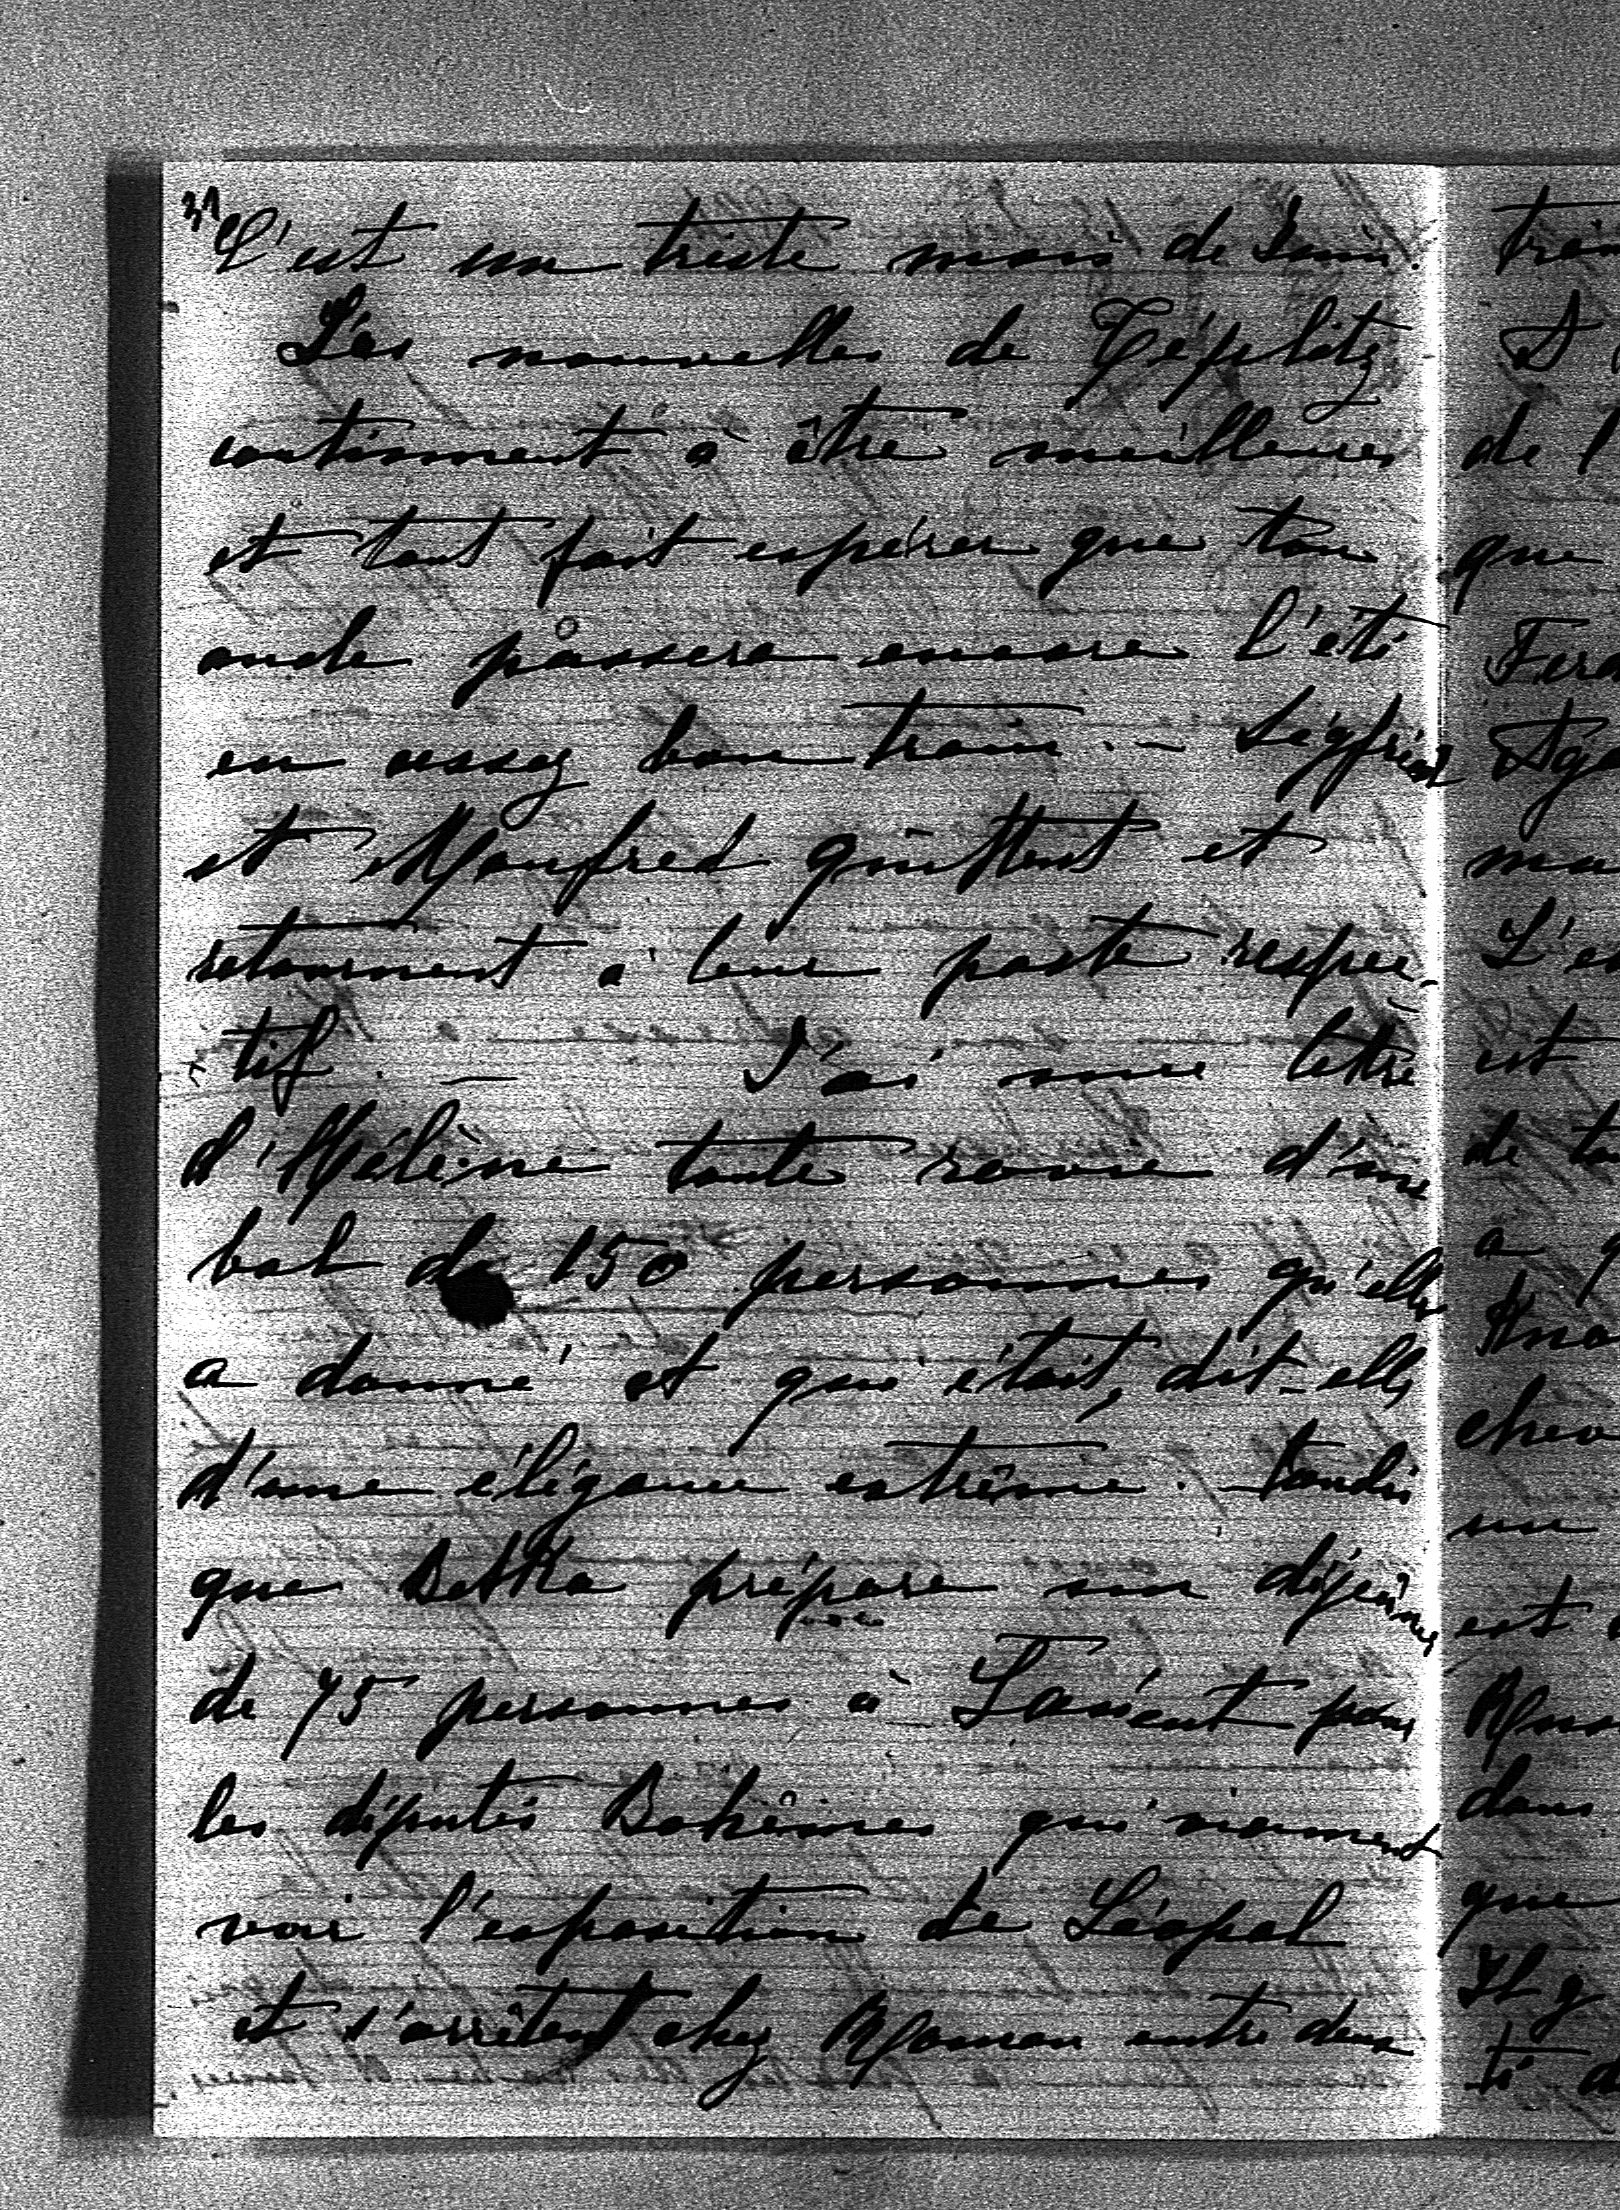 31
C'est un triste mois de Juin.
Les nouvelles de Téplitz
continuent à être meilleures
et tout fait espérer que ton
oncle passera encore l'été
en assez bon train. – Sigfried
et Manfred quittent et
retournent à leur poste respec-
tif. — J'ai une lettre
d'Hélène toute ravie d'un
bal de 150 personnes qu'elle
a donné et qui était, dit-elle
d'une élégance extrême. – tandis
que Betka prépare un déjeuner
de 75 personnes à Lancut pour
les députés Bohêmes qui viennent
voir l'exposition de Léopol
et s'arrêtent chez Maman entre deux
trein
de l
que
Fer
mai
L'e
est
de to
a q
chev
un
est
dans
que
Il y
té a